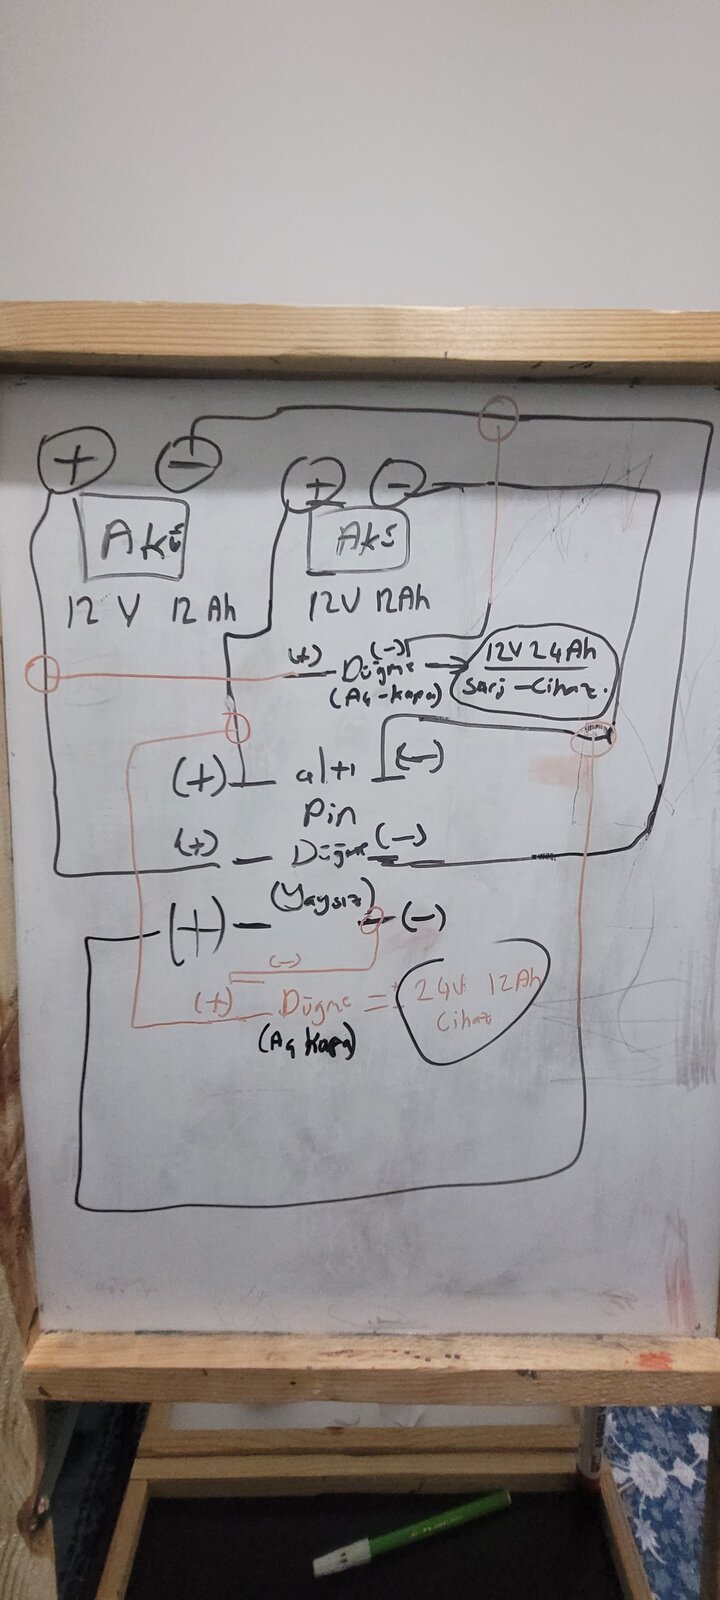 + -
+ -
Akü
Akü
12 V 12 Ah
12V 12Ah
(+) Düğme (-)
(Aç-Kapa)
12V 24Ah
Şarj-Cihaz.
(+) altı (-)
Pin
(+) Düğme (-)
(Yaysız)
(+) (-)
(-)
(+) Düğme = 24V 12Ah
Cihaz
(Aç Kapa)